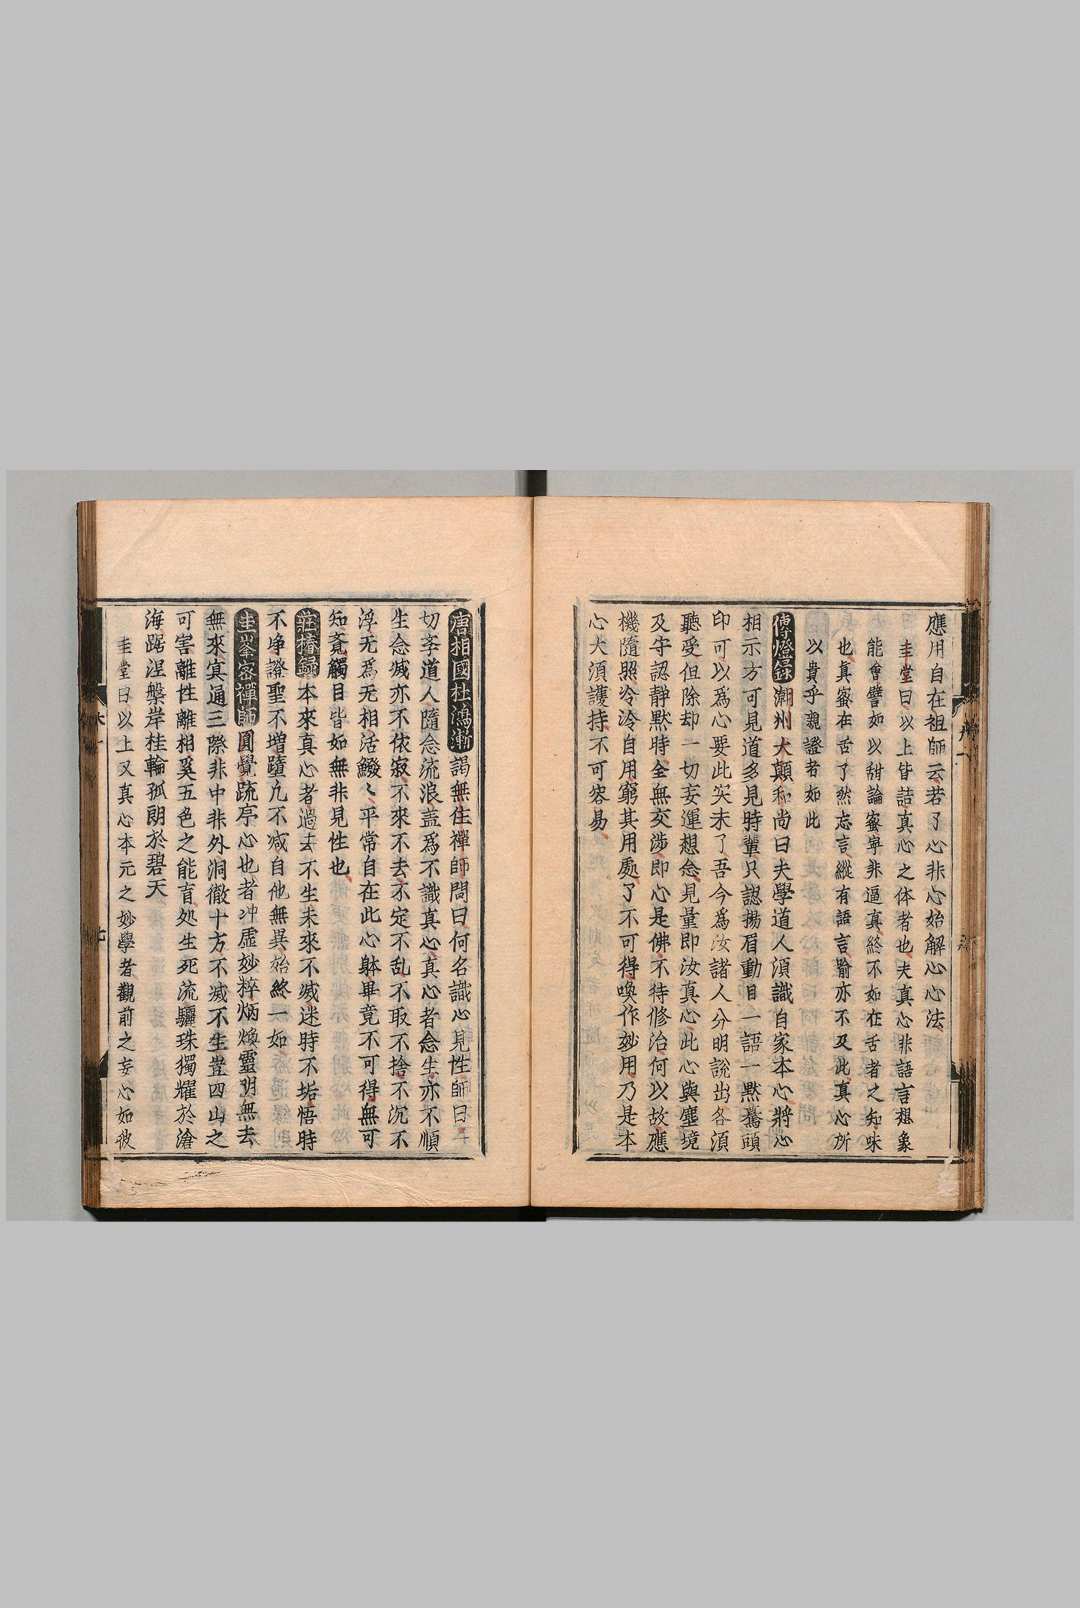 應用自在祖師云若了心非心始解心心法
圭堂曰以上皆詰真心之体者也夫真心非語言想象
能會譬如以甜論蜜寧非逼真終不如在舌者之知味
也真蜜在舌了然忘言縱有語言喻亦不及此真心所
以貴乎親證者如此
傳燈録潮州大顛和尚曰夫學道人須識自家本心將心
相示方可見道多見時輩只認揚眉動目一語一黙驀頭
印可以爲心要此実未了吾今爲汝諸人分明說出各須
聽受但除却一切妄運想念見量即汝真心此心與塵境
及守認静黙時全無交渉即心是佛不待修治何以故應
機隨照冷冷自用窮其用處了不可得喚作妙用乃是本
心大須護持不可容易
唐相國杜鴻漸謁無住禪師問曰何名識心見性師曰一
切孝道人隨念流浪盖爲不識真心真心者念生亦不順
生念滅亦不依寂不來不去不定不乱不取不捨不沉不
浮无爲无相活鱍々平常自在此心躰畢竟不可得無可
知竟觸目皆如無非見性也
莊椿録本來真心者過去不生未來不滅迷時不垢悟時
不净證聖不增蹟凢不减自他無異始終一如
圭峯宻禪師圓覺䟽序心也者冲虚妙粹炳煥靈明無去
無來㝠通三際非中非外洞徹十方不滅不生豈四山之
可害離性離相奚五色之能盲処生死流驪珠獨耀於滄
海踞涅槃岸桂輪孤朗於碧天
圭堂曰以上又真心本元之妙學者觀前之妄心如彼
七